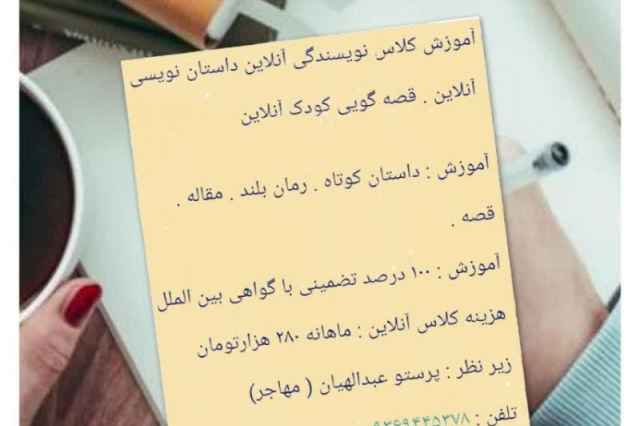 آموزش کلاس نویسندگی آنلاین داستان نویسی
آنلاین . قصه گویی کودک آنلاین
آموزش : داستان کوتاه . رمان بلند . مقاله .
قصه .
آموزش : ۱۰۰ درصد تضمینی با گواهی بین الملل
هزینه کلاس آنلاین : ماهانه ۲۸۰ هزارتومان
زیر نظر : پرستو عبدالهیان ( مهاجر)
تلفن :